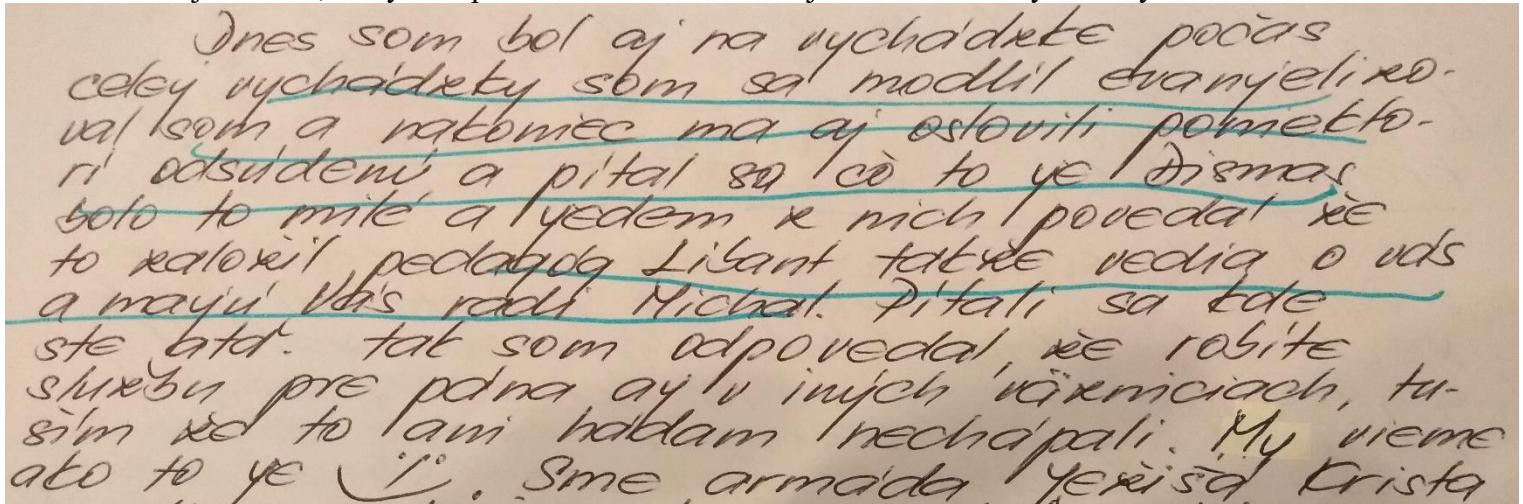 Dnes som bol aj na vychádzke počas
celej vychádzky som sa modlil evanjelizo-
val som a nakoniec ma aj oslovili poniekto-
rí odsúdený a pítal sa čo to ye Dismas
bolo to milé a yedem z nich povedal že
to založil pedagog Libant takže vedia o vás
a mayú Vás radi Michal. Pítali sa kde
ste atď. tak som odpovedal, že robíte
službu pre pána ay v iných väzniciach, tu-
ším že to ani hádam nechápali. My vieme
ako to ye. Sme armáda Yežiša Krista